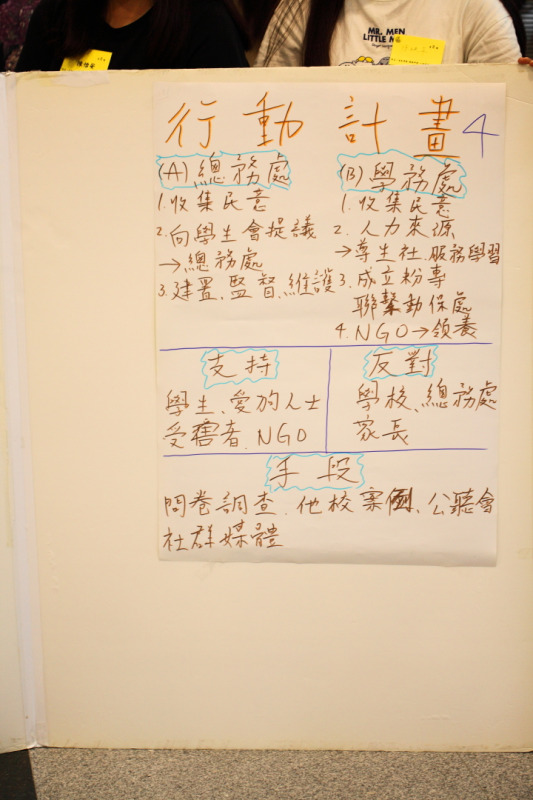 MR. MEN
LITTLE M
行動計畫 4
(A) 總務處
1. 收集民意
2. 向學生會提議
→總務處
3. 建置、監督、維護
(B) 學務處
1. 收集民意
2. 人力來源
→尊生社、服務學習
3. 成立粉專
聯繫動保處
4. NGO→領養
支持
學生、愛狗人士
受害者、NGO
反對
學校、總務處
家長
手段
問卷調查、他校案例、公聽會
社群媒體